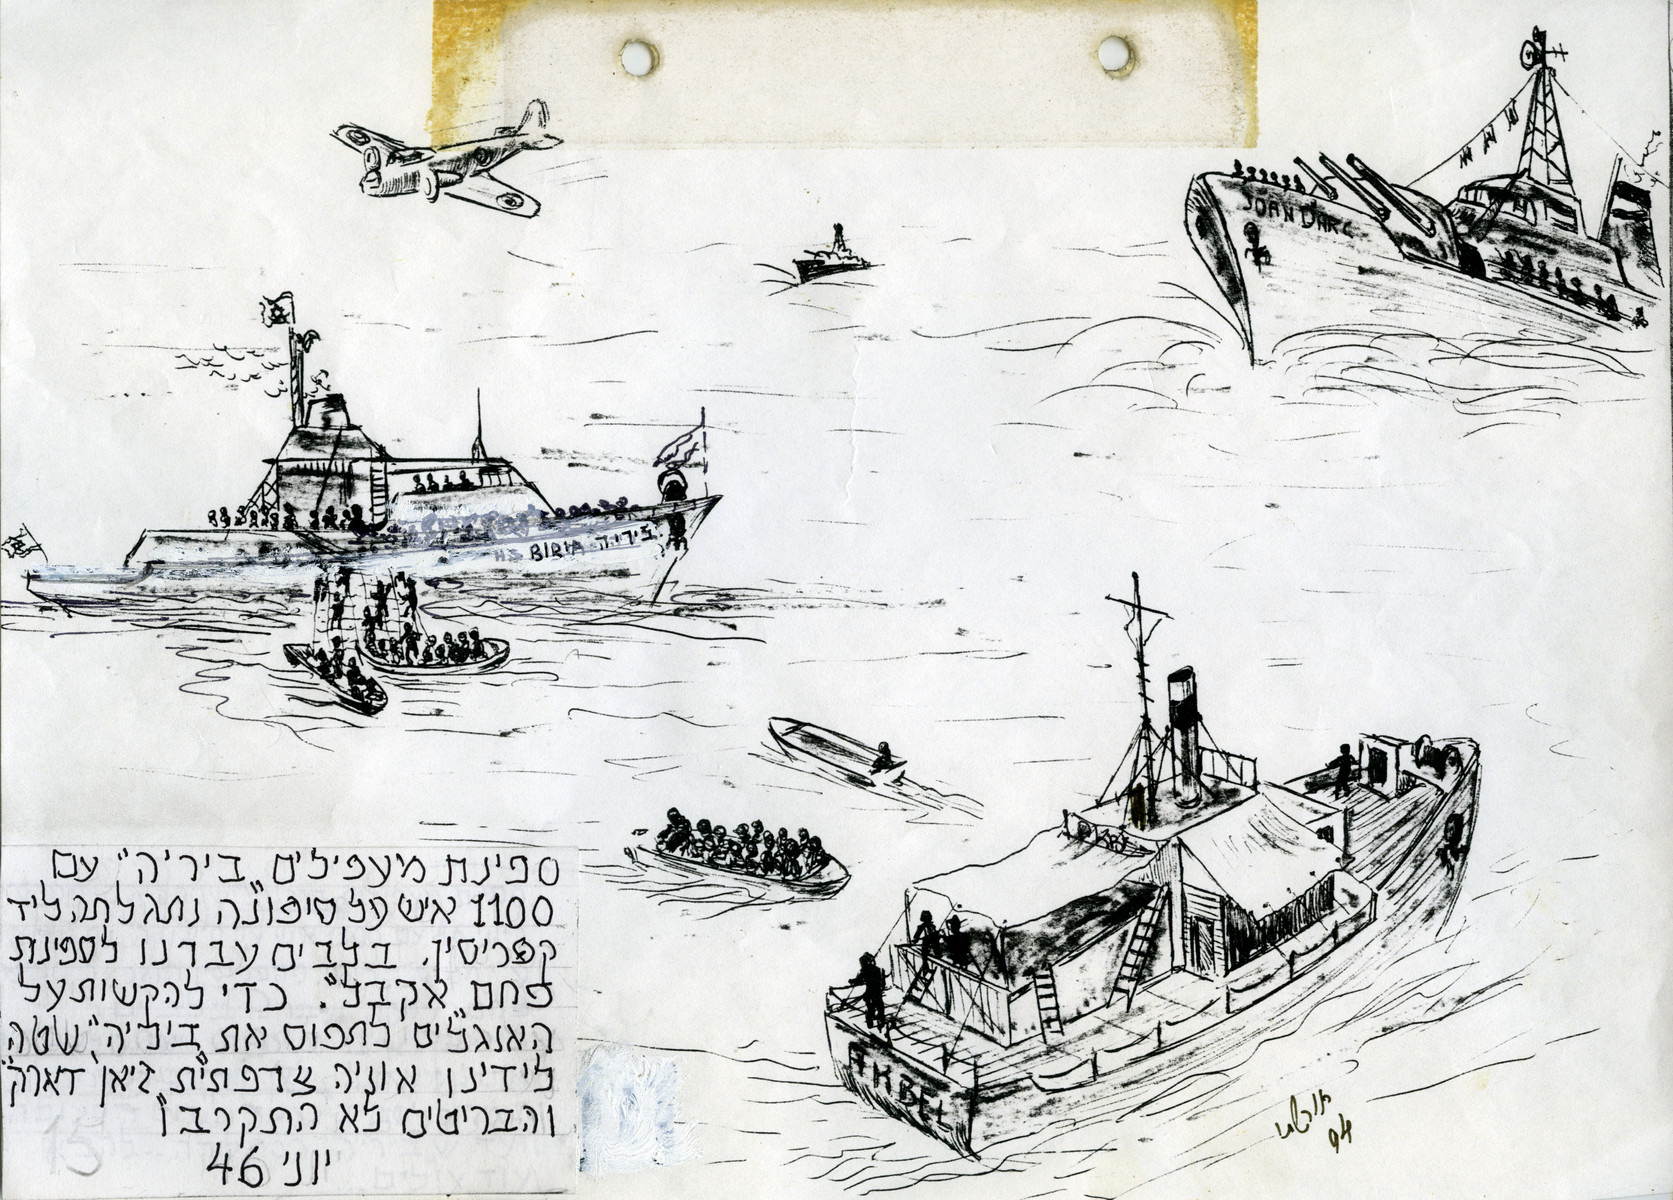 JOAN DARC
HS BIRIA ביריה
AKBEL
ספינת מעפילים "ביריה" עם
1100 איש על סיפונה נתגלתה ליד
קפריסין. בלבים עברנו לספינת
פחם "אקבל". כדי להקשות על
האנגלים לתפוס את "ביריה" שטה
לידינו אוניה צרפתית "ז'אן דארק"
והבריטים לא התקרבו
יוני 46
15
94